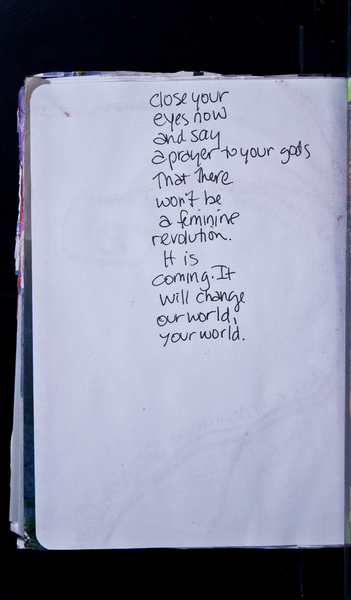 close your
eyes now
and say
a prayer to your gods
That there
won't be
a feminine
revolution.
It is
coming. It
will change
our world,
your world.